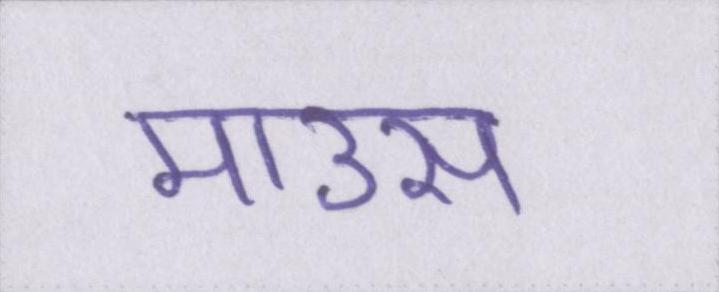 माउस